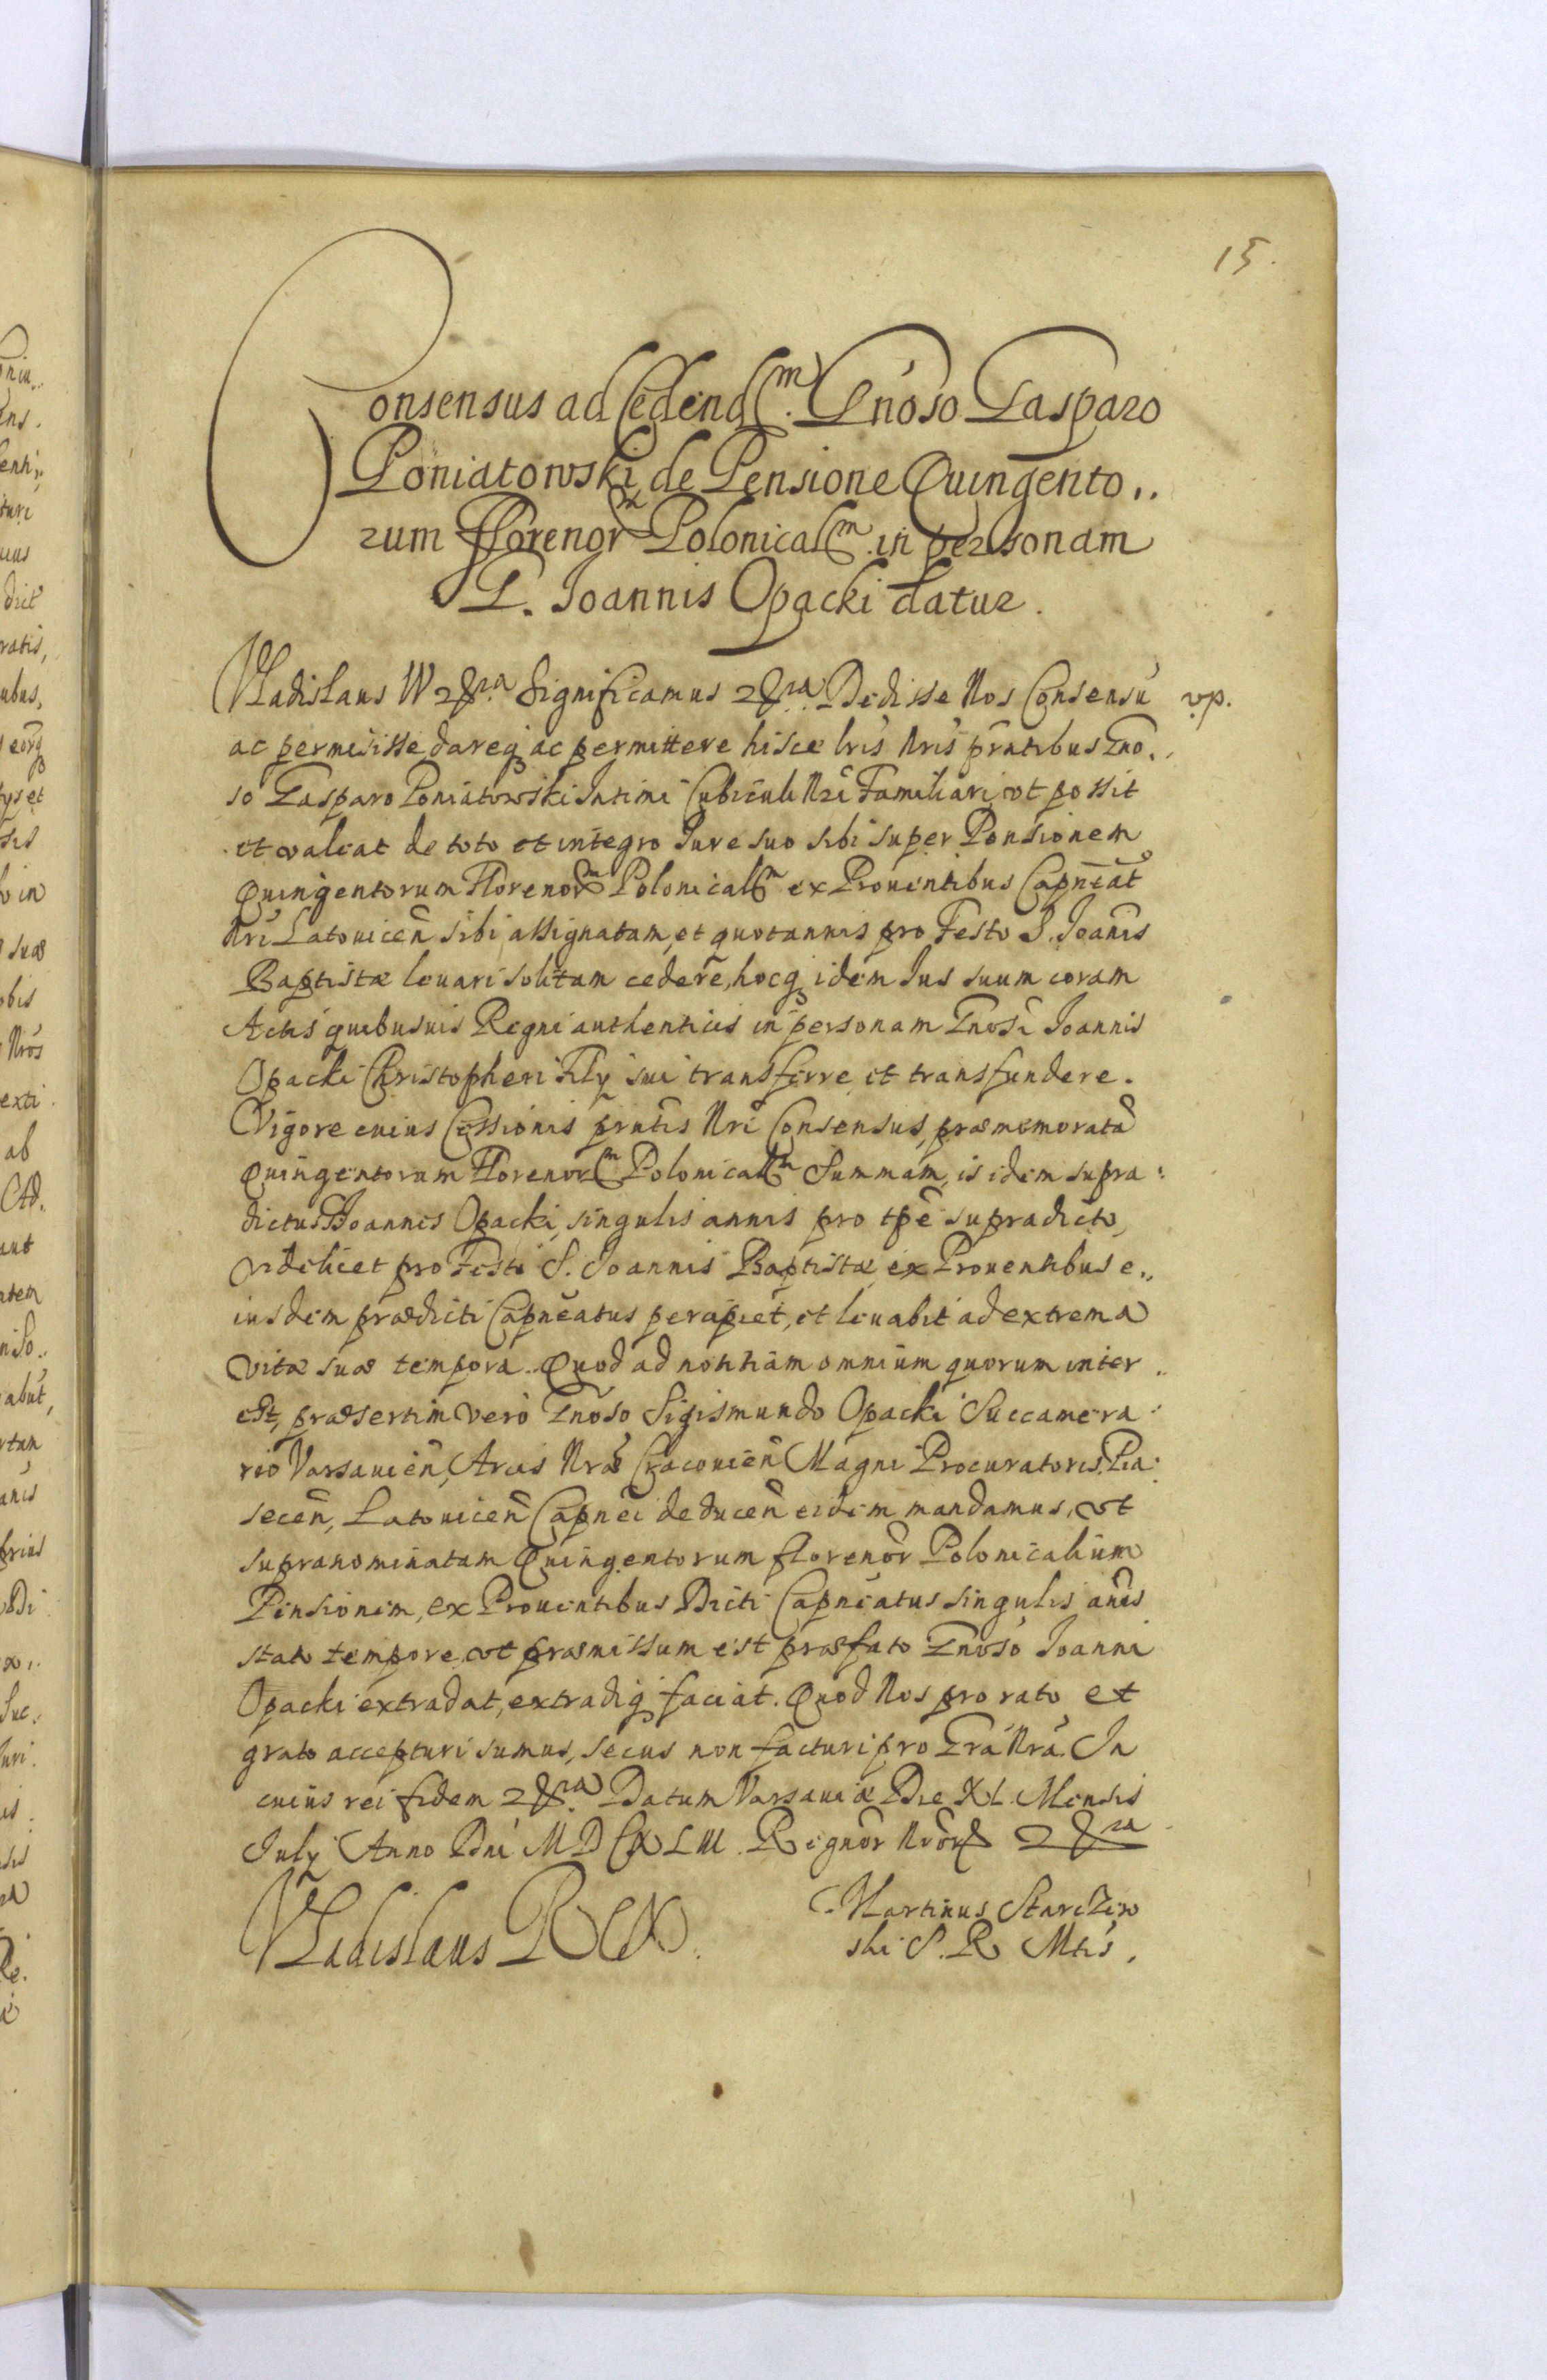 15.
Consensus ad Cedendm. Gnoso Gasparo
Poniatowski de Pensione Quingento„
rum Florenorm Polonicalm. in personam
G. Joannis Opacki datur.
Vladislaus IV &ra Significamus &ra. Dedisse Nos Consensu vp.
ac permisisse dareq ac permittere hisce lris Nris pratibus Gno„
so Gasparo Poniatowski Intimi Cubiculi Nri Familiari, vt possit
et valeat de toto et integro Jure suo sibi super Pensionem
Quingentorum Florenorm Polonicalm ex Prouentibus Capneat
Nri Latouicen sibi assignatam, et quotannis pro Festo S. Joanis
Baptistæ leuari solitam cedere, hocq idem Jus suum coram
Actis quibusuis Regni authenticis in personam Gnosi Joannis
Opacki Christopheri Fily sui transferre et transfundere.
Vigore cuius Cessionis prntis Nri Consensus, præmemorata
Quingentorum Florenorm Polonicalm Summam, is idem supra:
dictus Joannes Opacki, singulis annis pro tpe supradicto,
videlicet pro Festo S. Joannis Baptistæ ex Prouentibus e„
iusdem prædicti Capneatus percipiet, et leuabit ad extrema
vitæ suæ tempora. Quod ad notitiam omnium quorum inter„
est, præsertim vero Gnoso Sigismundo Opacki Succamera:
rio Varsauien, Arcis Nræ Cracouien Magni Procuratoris, Pia:
secen, Latouicen Capnei deducen eidem mandamus, vt
supranominatam Quingentorum florenor Polonicalium
Pensionem, ex Prouentibus Dicti Capneatus singulis anis
stato tempore, vt præmissum est præfato Gnoso Joanni
Opacki extradat, extradiq faciat. Quod Nos pro rato et
grato accepturi sumus, secus non facturi pro Gra Nra. In
cuius rei fidem &ra. Datum Varsauiæ Die XI. Mensis
July Anno Dni MDCXLIII. Regnor Nror &ra
Vladislaus Rex.
Martinus Starczew
ski S. R Mtis.